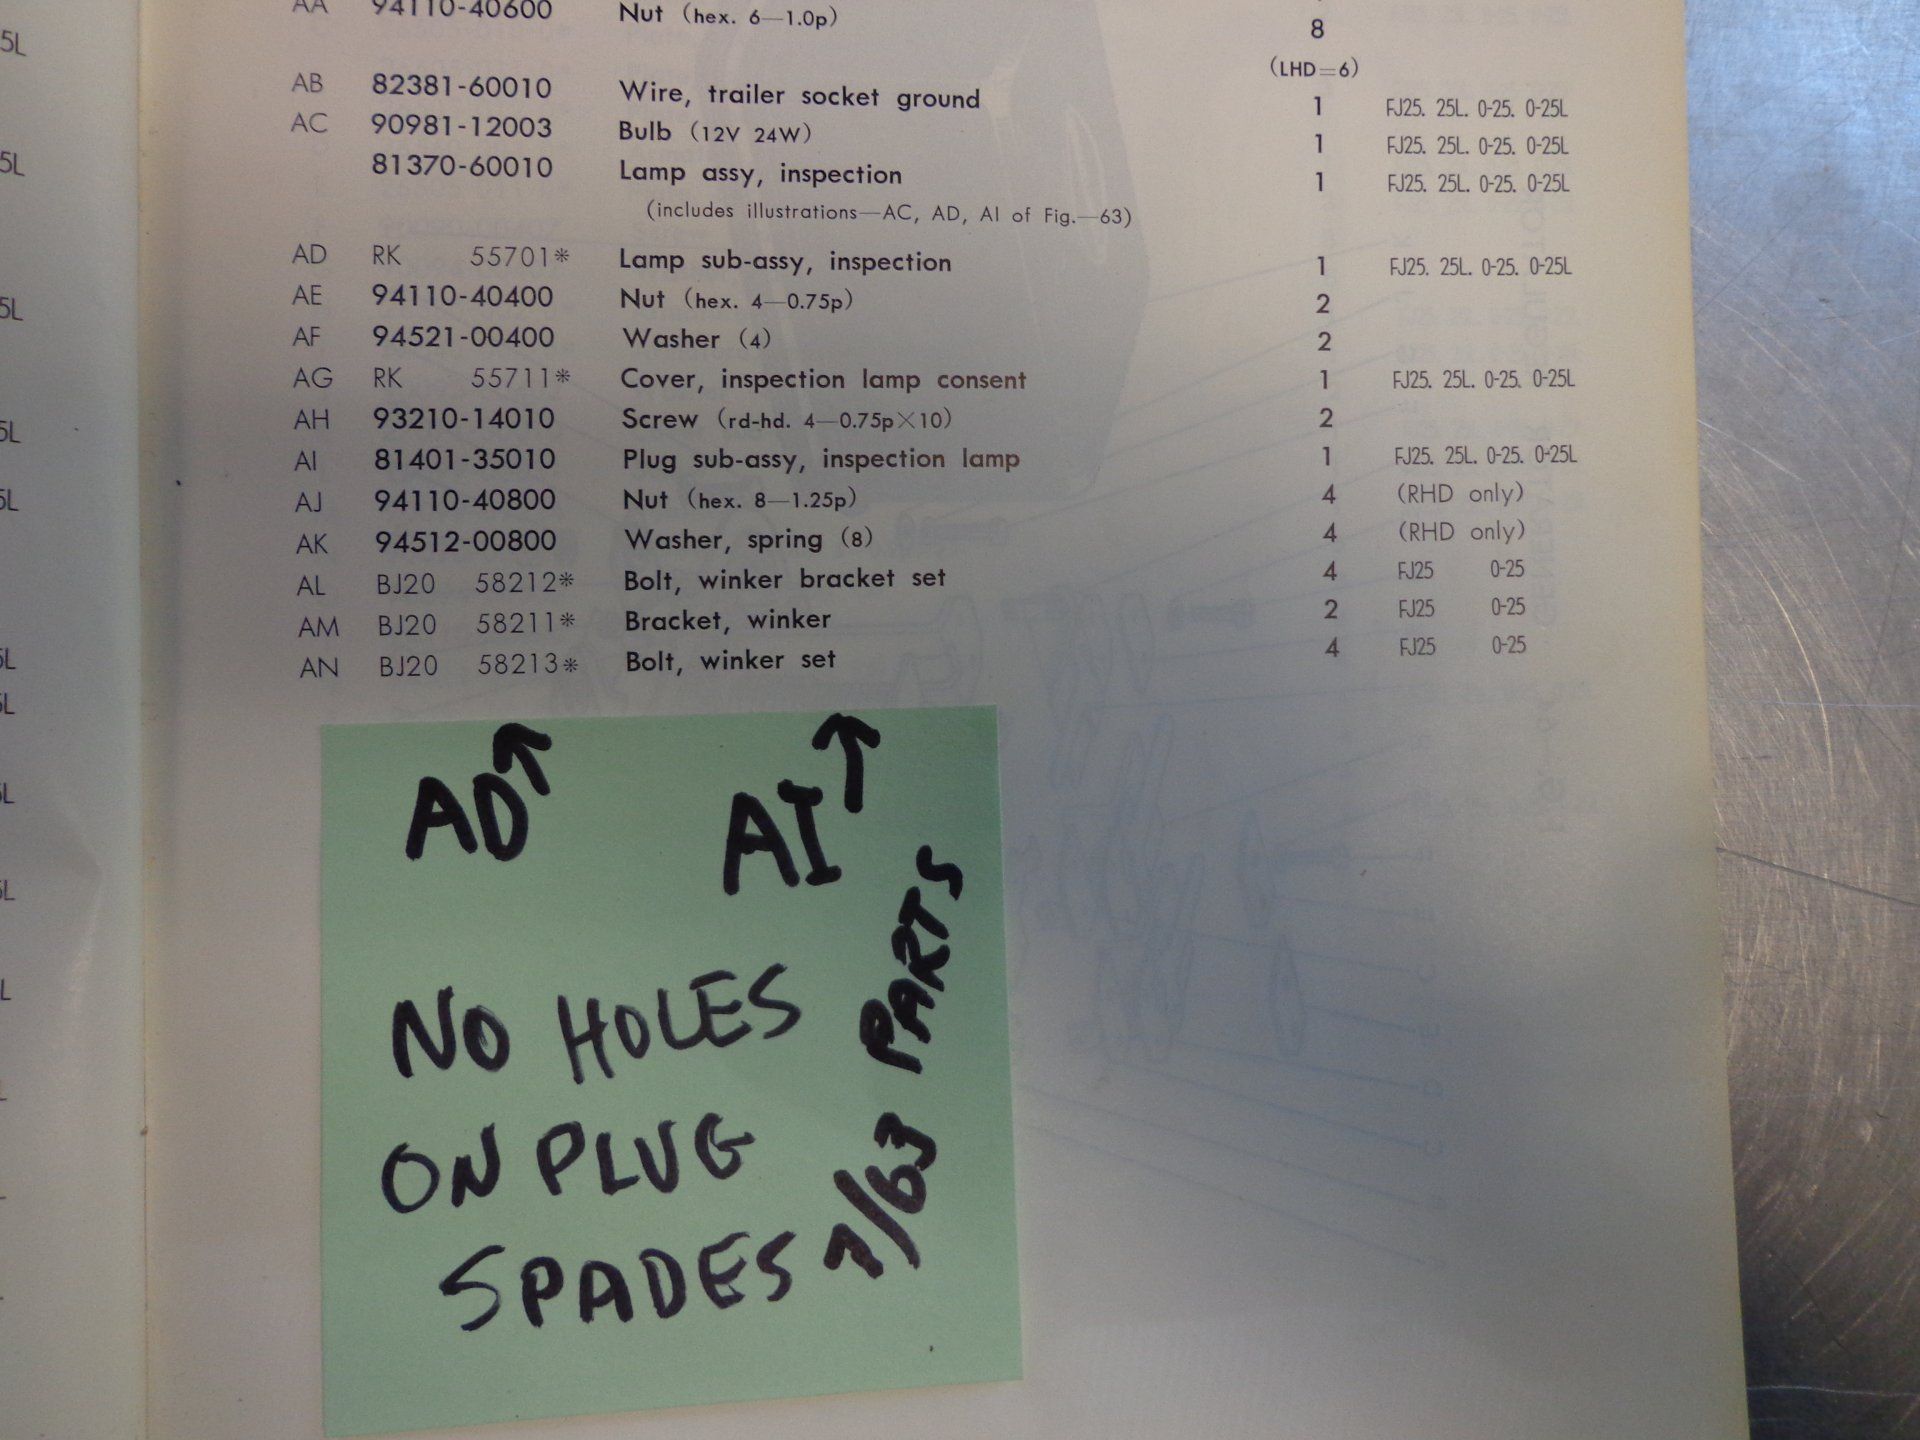 AA 94110-40600 Nut (hex. 6—1.0p) 8
(LHD=6)
AB 82381-60010 Wire, trailer socket ground 1 FJ25. 25L. 0-25. 0-25L
AC 90981-12003 Bulb (12V 24W) 1 FJ25. 25L. 0-25. 0-25L
81370-60010 Lamp assy, inspection 1 FJ25. 25L. 0-25. 0-25L
(includes illustrations—AC, AD, AI of Fig.—63)
AD RK 55701* Lamp sub-assy, inspection 1 FJ25. 25L. 0-25. 0-25L
AE 94110-40400 Nut (hex. 4—0.75p) 2
AF 94521-00400 Washer (4) 2
AG RK 55711* Cover, inspection lamp consent 1 FJ25. 25L. 0-25. 0-25L
AH 93210-14010 Screw (rd-hd. 4—0.75p×10) 2
AI 81401-35010 Plug sub-assy, inspection lamp 1 FJ25. 25L. 0-25. 0-25L
AJ 94110-40800 Nut (hex. 8—1.25p) 4 (RHD only)
AK 94512-00800 Washer, spring (8) 4 (RHD only)
AL BJ20 58212* Bolt, winker bracket set 4 FJ25 0-25
AM BJ20 58211* Bracket, winker 2 FJ25 0-25
AN BJ20 58213* Bolt, winker set 4 FJ25 0-25
AD↑ AI↑
NO HOLES
ON PLUG
SPADES
7/63 PARTS